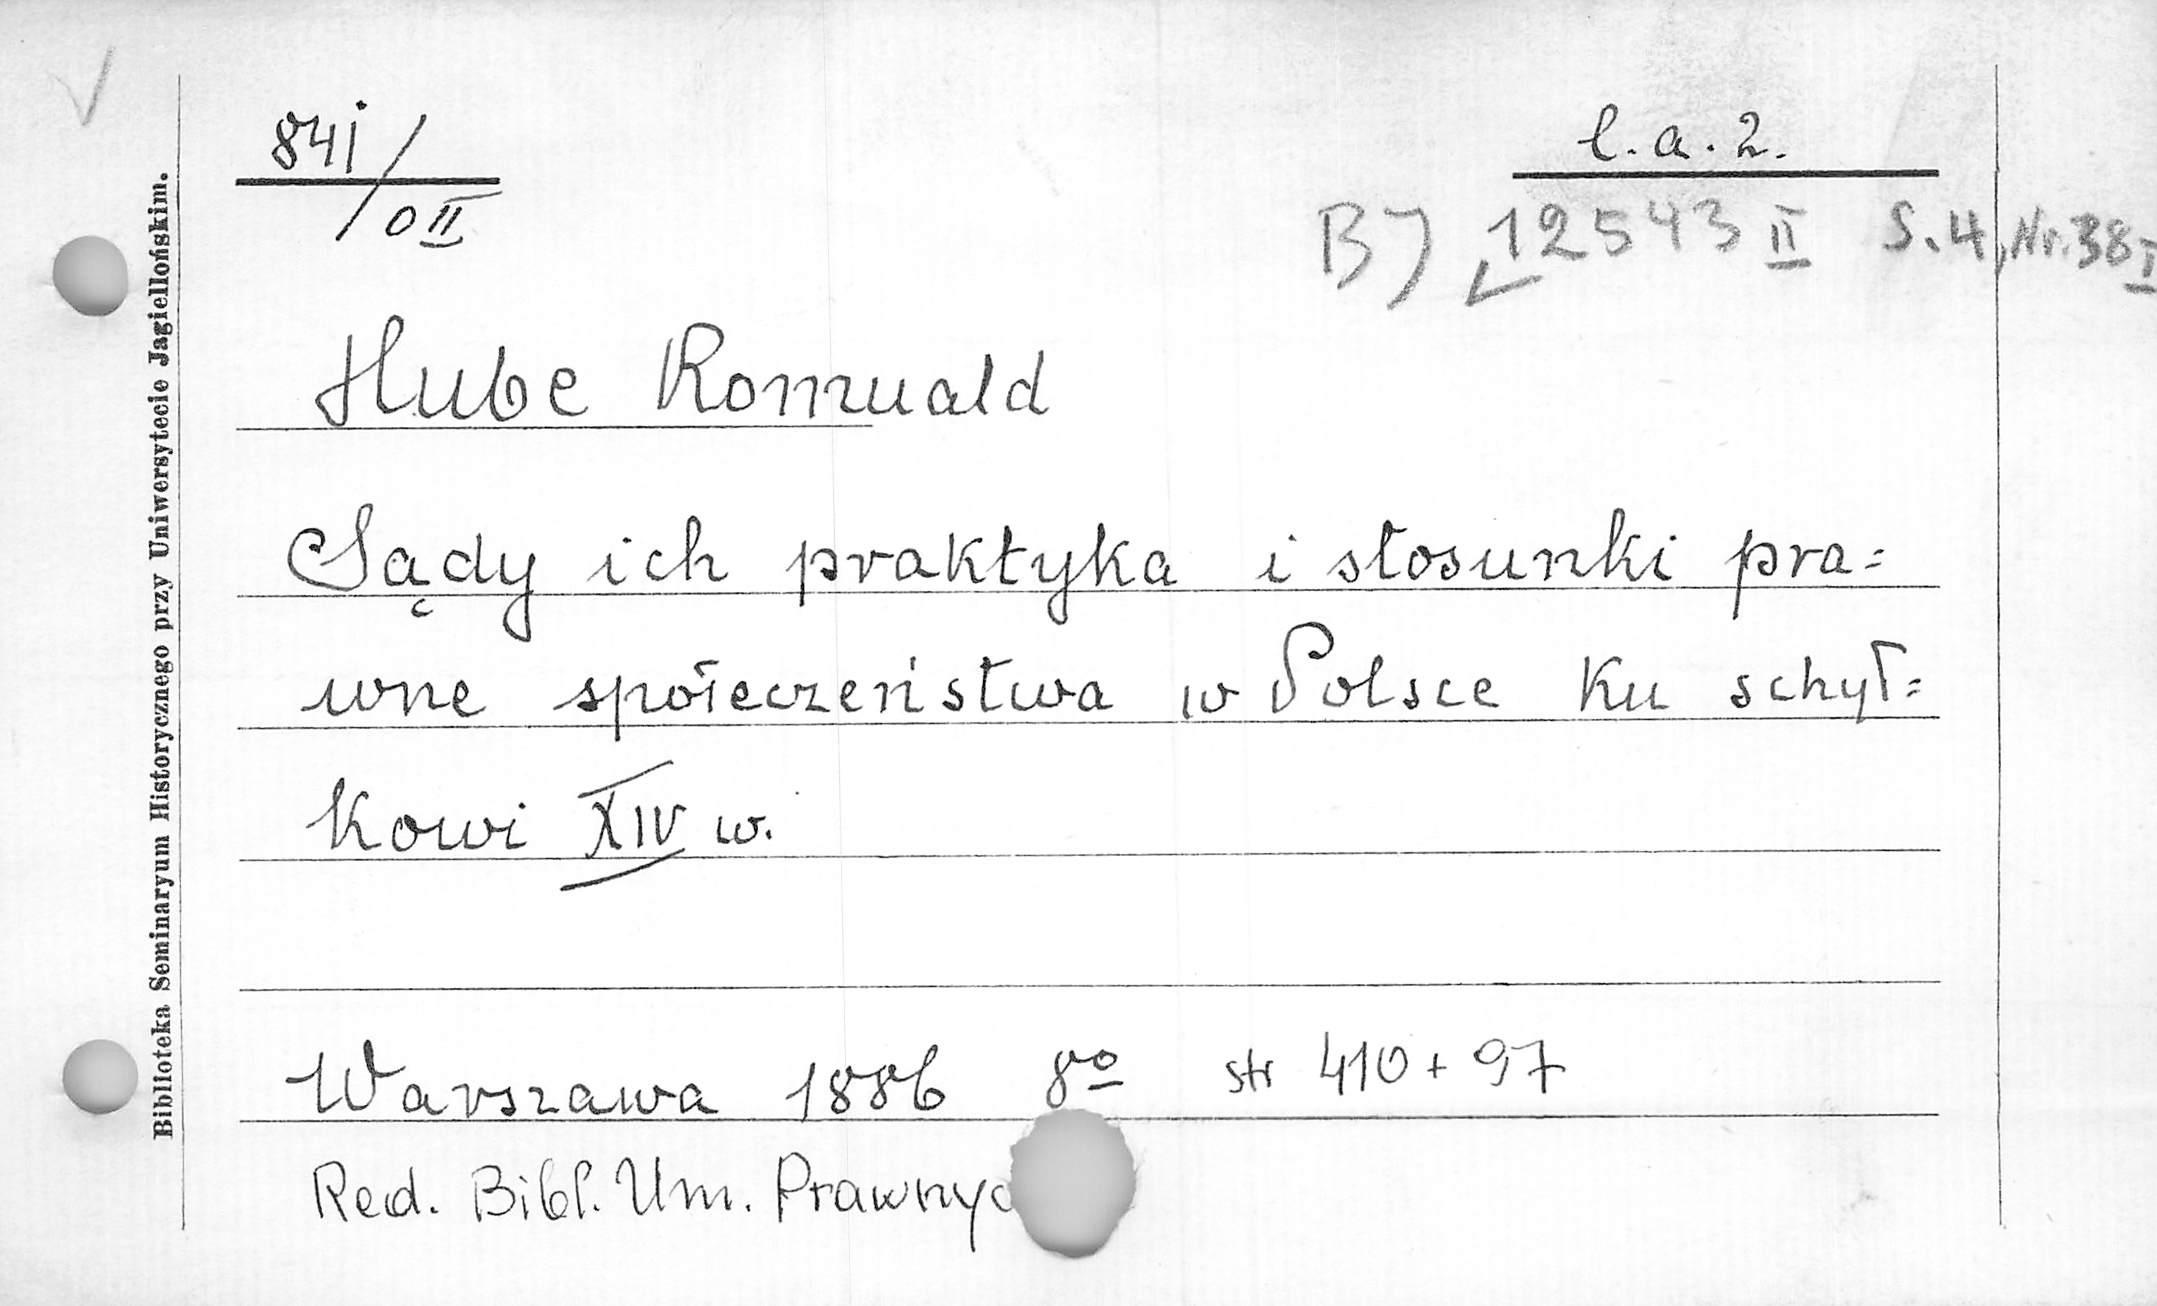 841/0II
l.a.2.
B) 12543 II S.4, Nr.38 I
Hube Romuald
Sądy ich praktyka i stosunki pra=
wne społeczeństwa w Polsce ku schył=
kowi XIV w.
Warszawa 1886 8o str 410 + 97
Red. Bibl. Um. Prawnyc
Biblioteka Seminaryum Historycznego przy Uniwersytecie Jagiellońskim.